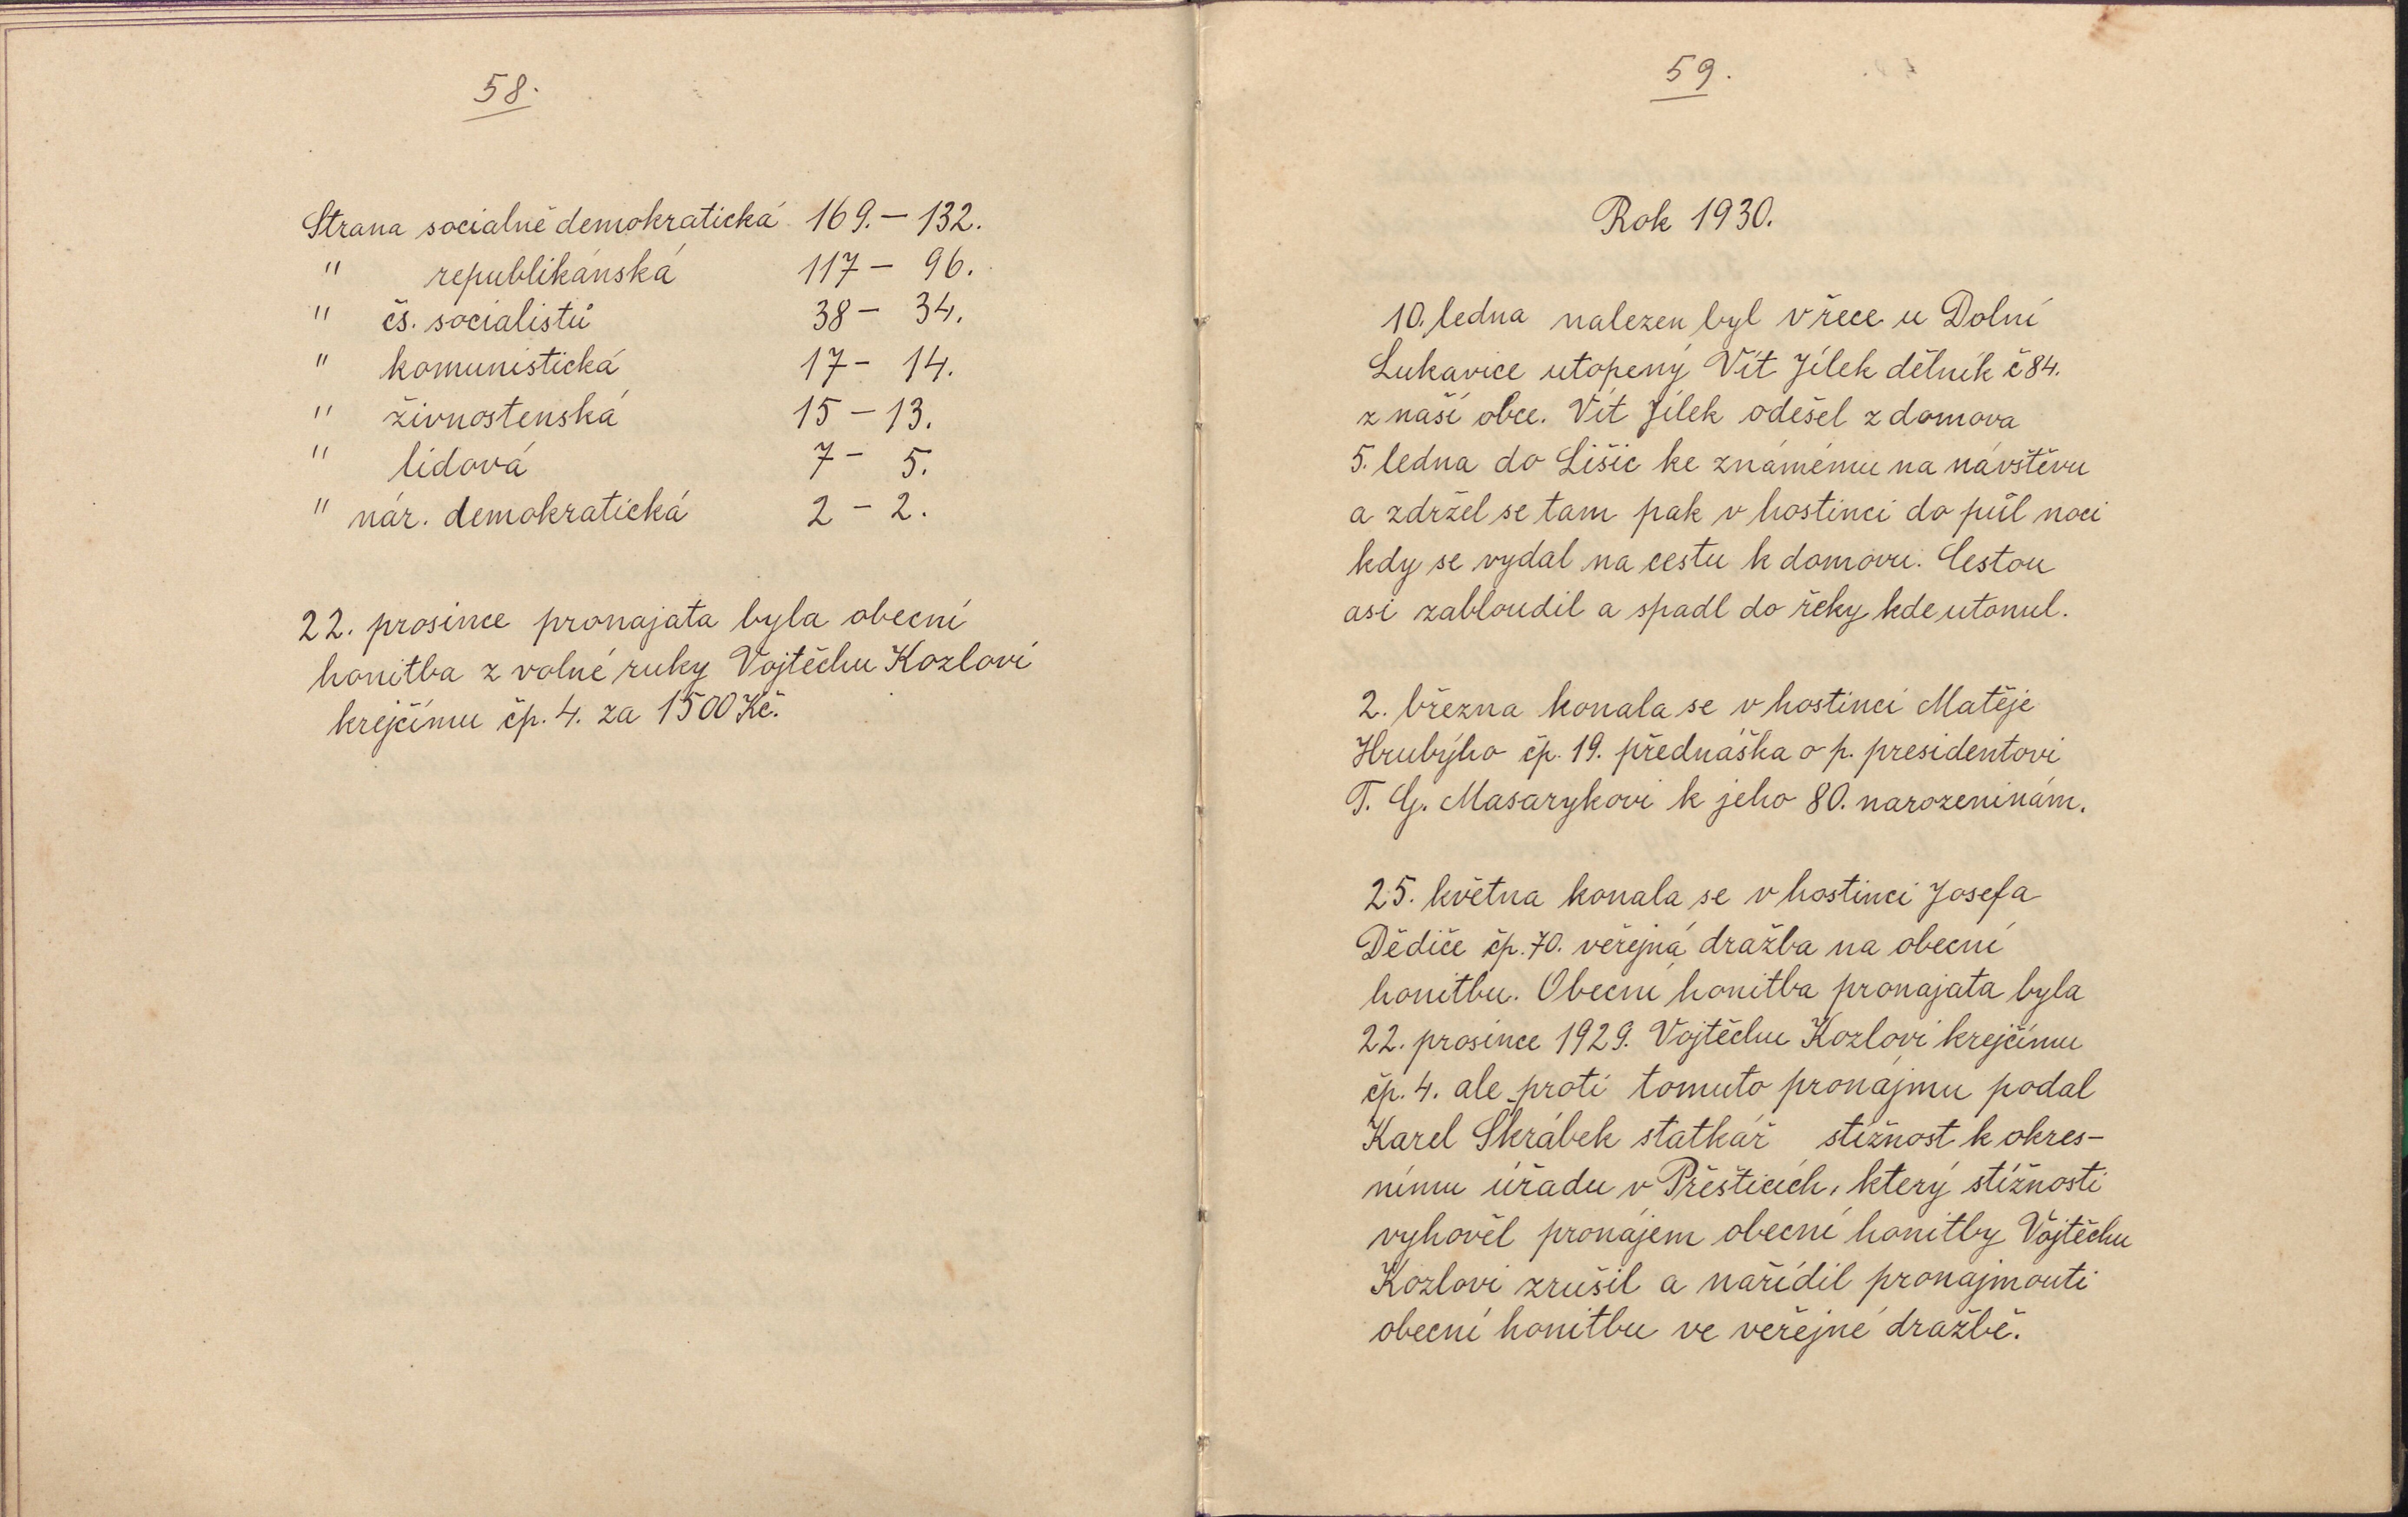 58.
Strana socialně demokratická 169. – 132.
" republikánská 117 – 96.
" čs. socialistů 38 – 34.
" komunistická 17 – 14.
" živnostenská 15 – 13.
" lidová 7 – 5.
" nár. demokratická 2 – 2.
22. prosince pronajata byla obecní
honitba z volné ruky Vojtěchu Kozlovi
krejčímu čp. 4. za 1500 Kč.
59.
Rok 1930.
10. ledna nalezen byl v řece u Dolní
Lukavice utopený Vít Jílek dělník č 84.
z naší obce. Vít Jílek odešel z domova
5. ledna do Lišic ke známému na návštěvu
a zdržel se tam pak v hostinci do půl noci
kdy se vydal na cestu k domovu. Cestou
asi zabloudil a spadl do řeky kde utonul.
2. března konala se v hostinci Matěje
Hrubýho čp. 19. přednáška o p. presidentovi
T. G. Masarykovi k jeho 80. narozeninám.
25. května konala se v hostinci Josefa
Dědiče čp. 70. veřejná dražba na obecní
honitbu. Obecní honitba pronajata byla
22. prosince 1929. Vojtěchu Kozlovi krejčímu
čp. 4. ale proti tomuto pronájmu podal
Karel Škrábek statkář stížnost k okres-
nímu úřadu v Přešticích, který stížnosti
vyhověl pronájem obecní honitby Vojtěchu
Kozlovi zrušil a nařídil pronajmouti
obecní honitbu ve veřejné dražbě.